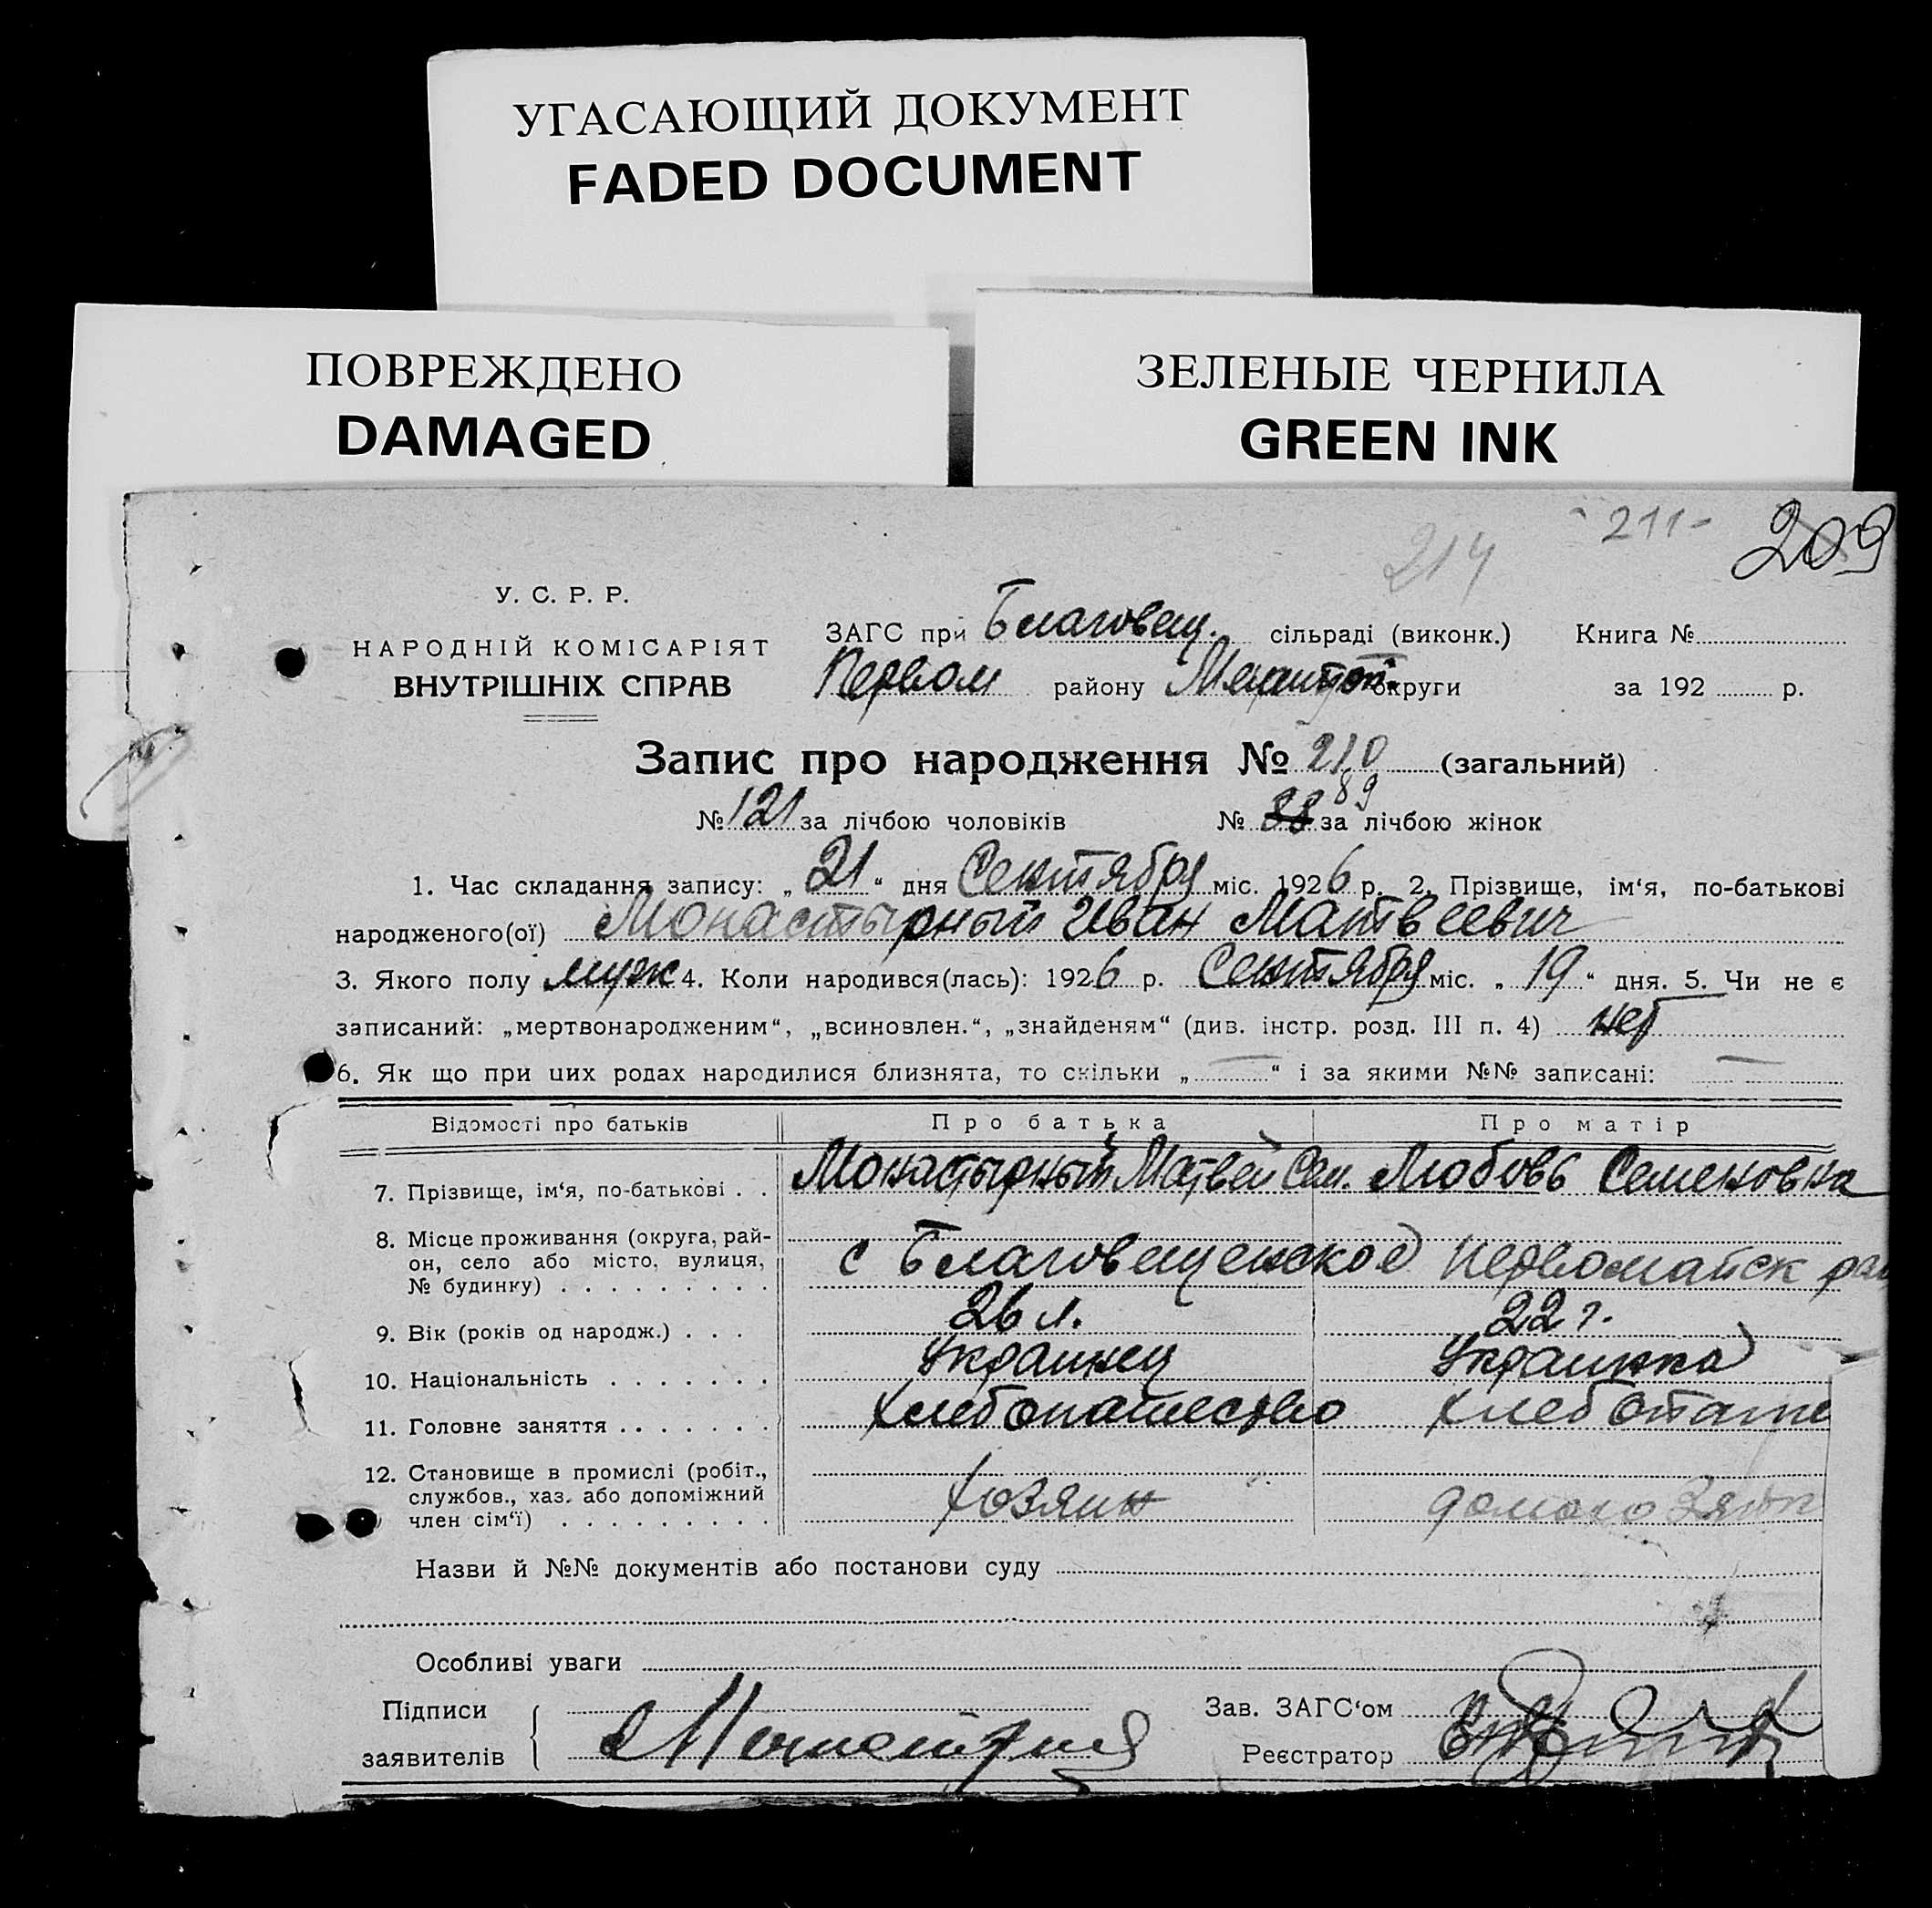 УГАСАЮЩИЙ ДОКУМЕНТ
FADED DOCUMENT
ПОВРЕЖДЕНО
DAMAGED
ЗЕЛЕНЫЕ ЧЕРНИЛА
GREEN INK
214 211 209
У. С. Р. Р.
НАРОДНІЙ КОМІСАРІЯТ
ВНУТРІШНІХ СПРАВ
ЗАГС при Благовещ. сільраді (виконк.) Книга №
Первом району округи за 192 р.
Запис про народження № 210 (загальний)
№ 121 за лічбою чоловіків № 88 89 за лічбою жінок
1. Час складання запису: „ 21 “ дня Сентября міс. 1926 р. 2. Прізвище, ім‘я, по-батькові
народженого(ої) Монастырный Иван Матвеевич
3. Якого полу муж 4. Коли народився(лась): 1926 р. Сентября міс. „ 19 “ дня. 5. Чи не є
записаний: „мертвонародженим“, „всиновлен.“, „знайденям“ (див. інстр. розд. III п. 4) нет
6. Як що при цих родах народилися близнята, то скільки „ — “ і за якими №№ записані: —
Відомості про батьків Про батька Про матір
7. Прізвище, ім‘я, по-батькові . . Монастырный Матвей Сем. Любовь Семеновна
8. Місце проживання (округа, рай-
он, село або місто, вулиця, с Благовещенское Первомайск рай
№ будинку) . . . . . . . . .
9. Вік (років од народж.) . . . 26 л. 22 г.
10. Національність . . . . . . . Украинец Украинка
11. Головне заняття . . . . . . . Хлебопашество Хлебопаше
12. Становище в промислі (робіт.,
службов., хаз. або допоміжний Хозяин домохозяйк
член сім‘ї) . . . . . . . . .
Назви й №№ документів або постанови суду
Особливі уваги
Підписи Зав. ЗАГС‘ом
заявителів Реєстратор